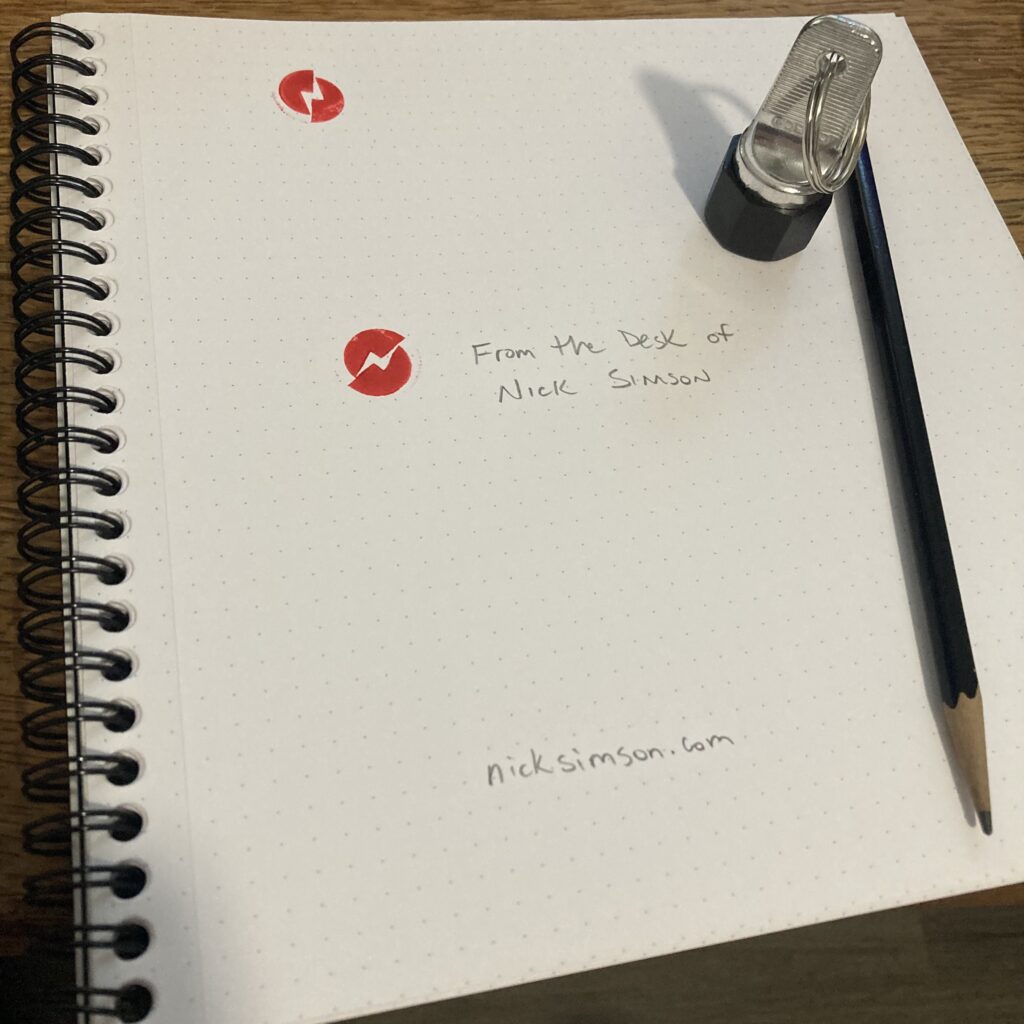 From the Desk of
Nick Simson
nicksimson.com